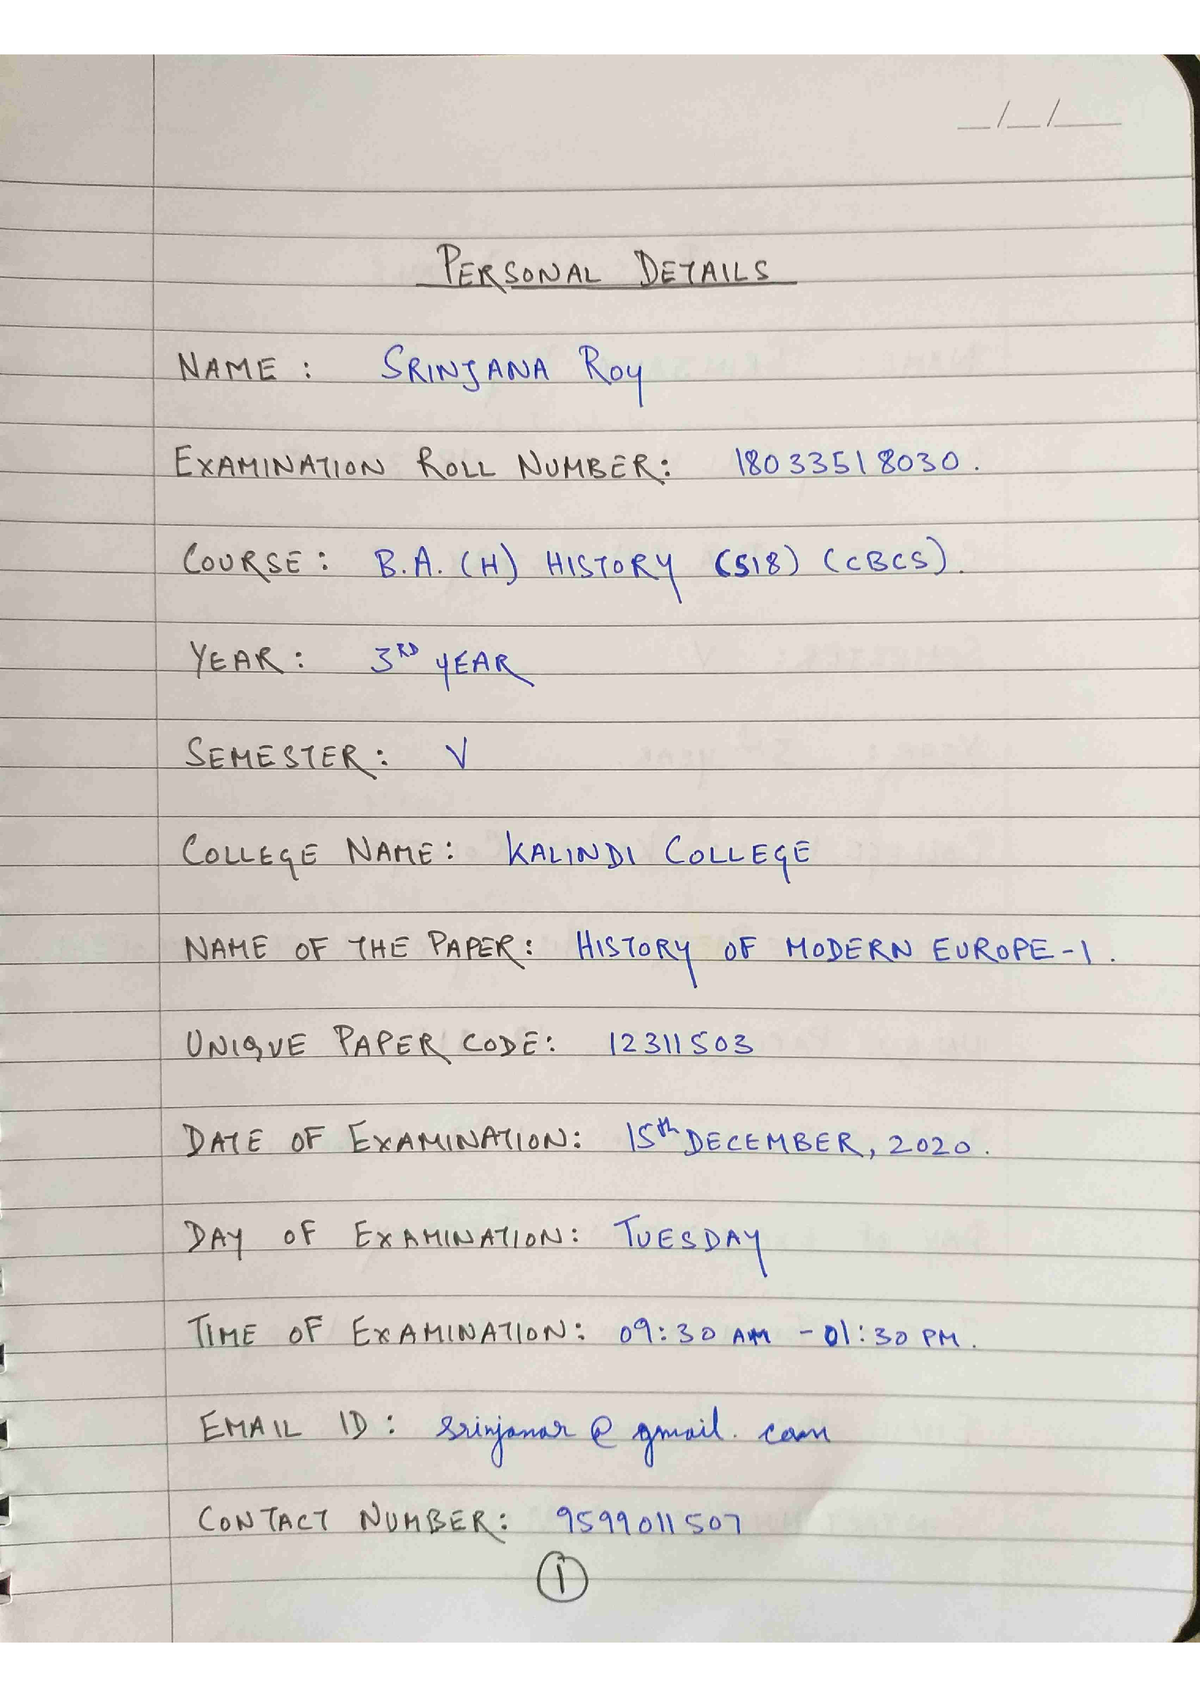 _/_/_
PERSONAL DETAILS
NAME : SRINJANA ROY
EXAMINATION ROLL NUMBER: 18033518030.
COURSE: B.A. (H) HISTORY (518) (CBCS).
YEAR: 3RD YEAR
SEMESTER: V
COLLEGE NAME: KALINDI COLLEGE
NAME OF THE PAPER: HISTORY OF MODERN EUROPE-1.
UNIQUE PAPER CODE: 12311503
DATE OF EXAMINATION: 15th DECEMBER, 2020.
DAY OF EXAMINATION: TUESDAY
TIME OF EXAMINATION: 09:30 AM - 01:30 PM.
EMAIL ID: srinjanar@gmail.com
CONTACT NUMBER: 9599011507
1